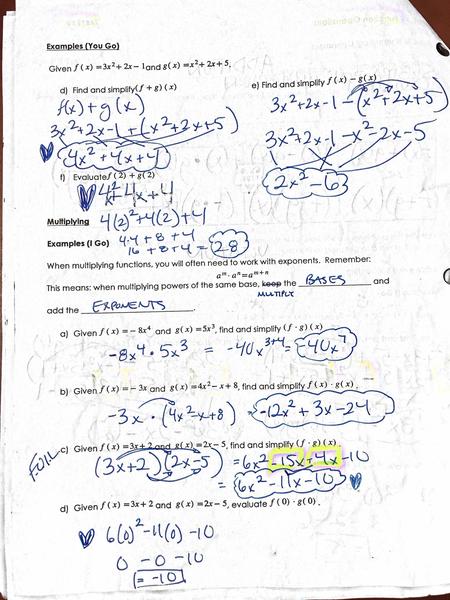 Examples (You Go)
Given f(x)=3x²+2x-1 and g(x)=x²+2x+5.
d) Find and simplify(f+g)(x)
f(x)+g(x)
3x²+2x-1+(x²+2x+5)
4x²+4x+4
e) Find and simplify f(x)-g(x)
3x²+2x-1-(x²+2x+5)
3x²+2x-1-x²-2x-5
2x²-6
f) Evaluate f(2)+g(2)
4x²+4x+4
4(2)²+4(2)+4
4·4+8+4
16+8+4=28
Multiplying
Examples (I Go)
When multiplying functions, you will often need to work with exponents. Remember:
aᵐ·aⁿ=aᵐ⁺ⁿ
This means: when multiplying powers of the same base, keep the BASES and
MULTIPLY
add the EXPONENTS.
a) Given f(x)=-8x⁴ and g(x)=5x³, find and simplify (f·g)(x)
-8x⁴·5x³ = -40x³⁺⁴ = -40x⁷
b) Given f(x)=-3x and g(x)=4x²-x+8, find and simplify f(x)·g(x).
-3x·(4x²-x+8) = -12x²+3x-24
FOIL
c) Given f(x)=3x+2 and g(x)=2x-5, find and simplify (f·g)(x).
(3x+2)(2x-5) =6x²-15x+4x-10
=6x²-11x-10
d) Given f(x)=3x+2 and g(x)=2x-5, evaluate f(0)·g(0).
6(0)²-11(0)-10
0-0-10
=-10